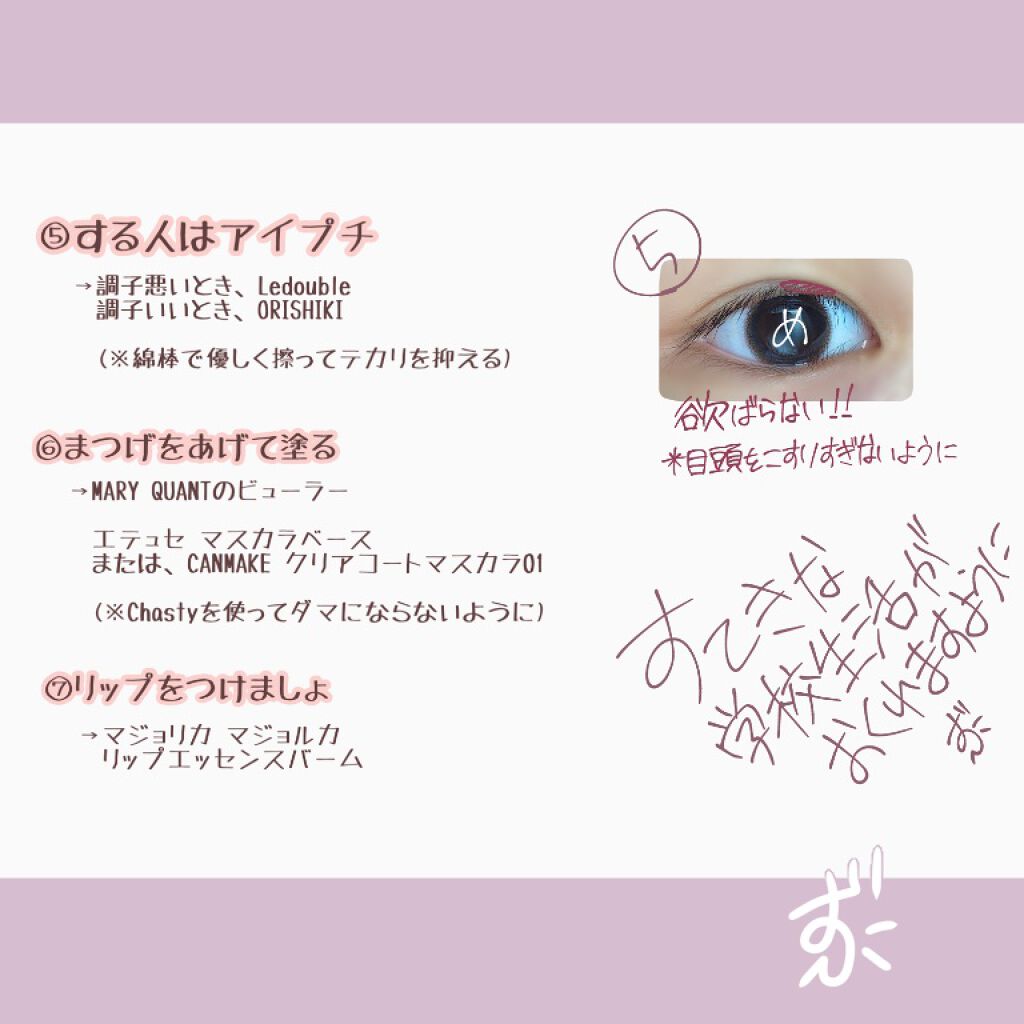 ⑤する人はアイプチ
→調子悪いとき、Ledouble
調子いいとき、ORISHIKI
(※綿棒で優しく擦ってテカリを抑える)
⑥まつげをあげて塗る
→MARY QUANTのビューラー
エテュセ マスカラベース
または、CANMAKE クリアコートマスカラ01
(※Chastyを使ってダマにならないように)
⑦リップをつけましょ
→マジョリカ マジョルカ
リップエッセンスバーム
5
め
欲ばらない!!
*目頭をこすりすぎないように
すてきな
学校生活が
おくれますように